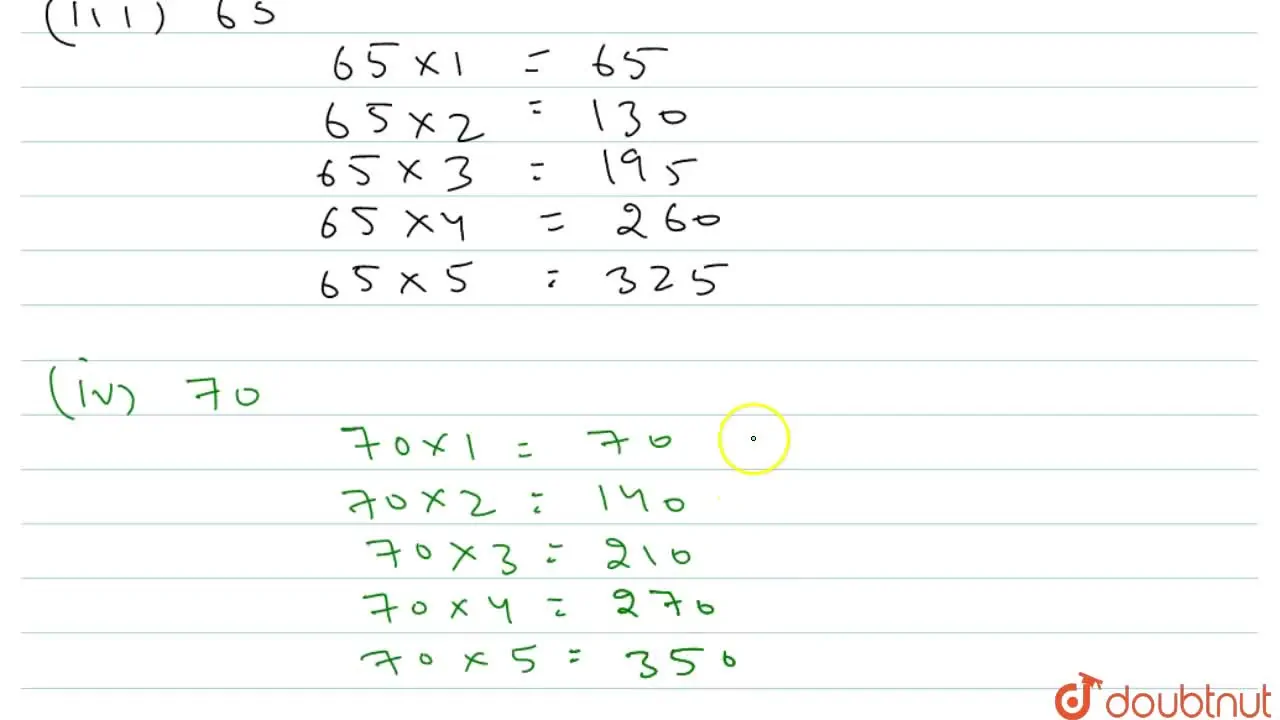 (iii) 65
65 × 1 = 65
65 × 2 = 130
65 × 3 = 195
65 × 4 = 260
65 × 5 = 325
(iv) 70
70 × 1 = 70
70 × 2 = 140
70 × 3 = 210
70 × 4 = 270
70 × 5 = 350
doubtnut